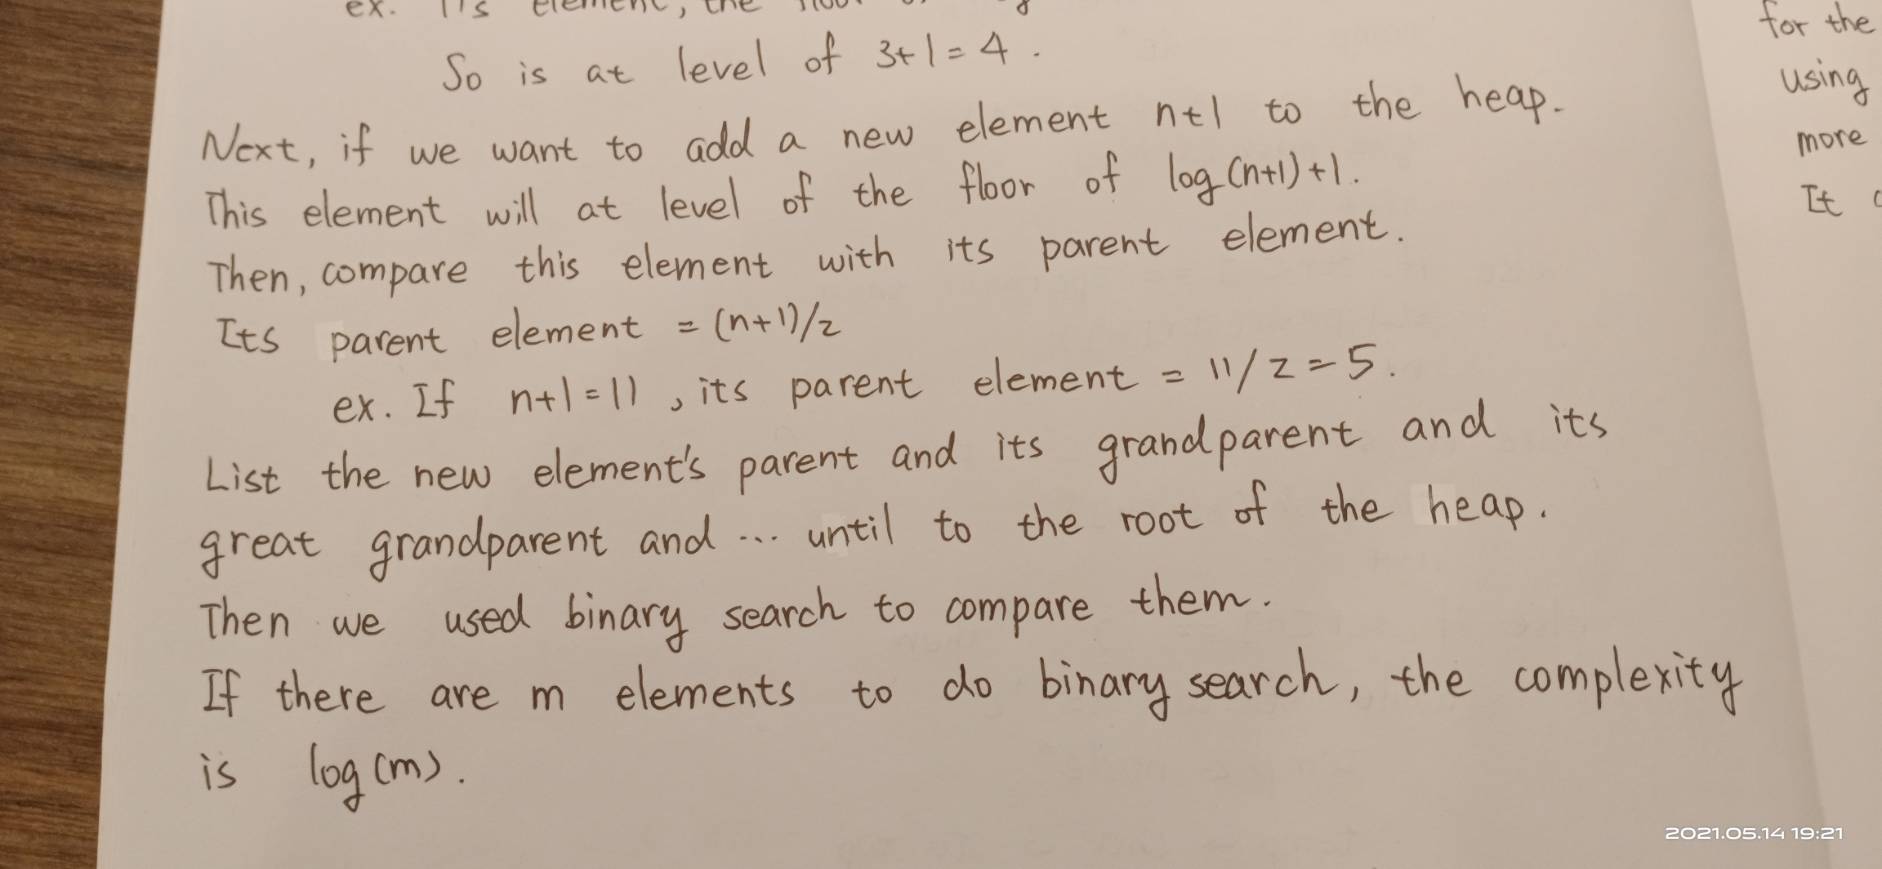 ex. 11's element, the floor of
So is at level of 3+1=4.
Next, if we want to add a new element n+1 to the heap.
This element will at level of the floor of log(n+1)+1.
Then, compare this element with its parent element.
Its parent element = (n+1)/2
ex. If n+1=11, its parent element = 11/2=5.
List the new element's parent and its grandparent and its
great grandparent and ... until to the root of the heap.
Then we used binary search to compare them.
If there are m elements to do binary search, the complexity
is log(m).
for the
using
more
It
2021.05.14 19:21